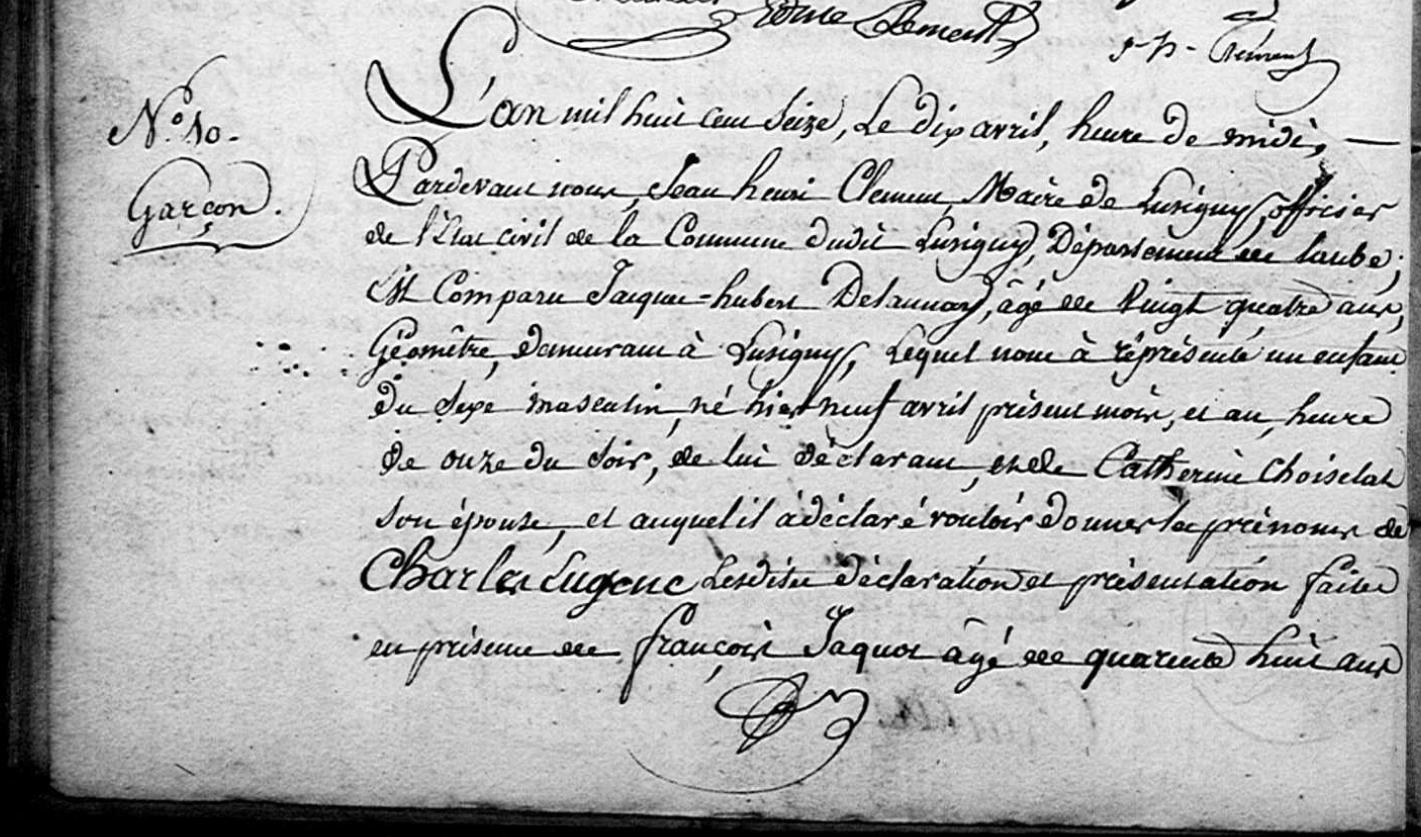 Edme Clement J-h- Clément
N.º 10.
Garçon.
L'an mil huit cent Seize, Le dix avril, heure de midi, —
Pardevant nous, Jean henri Clement, Maire de Lusigny, officier
de l'Etat civil de la Commune dudit Lusigny, Département de laube;
Est Comparu Jacque=hubert Delaunay, âgé de Vingt quatre ans,
Géomêtre, demeurant à Lusigny, Lequel nous à réprésenté un enfant
du Sexe masculin, né hier neuf avril présent mois, et au, heure
de onze du Soir, de lui déclarant, et de Catherine Choiselat
Son épouse, et auquel il à déclaré vouloir donner les prénoms de
Charles Eugene Lesdites déclaration et présentation faites
en présence de françois Jaquot âgé de quarente huit ans